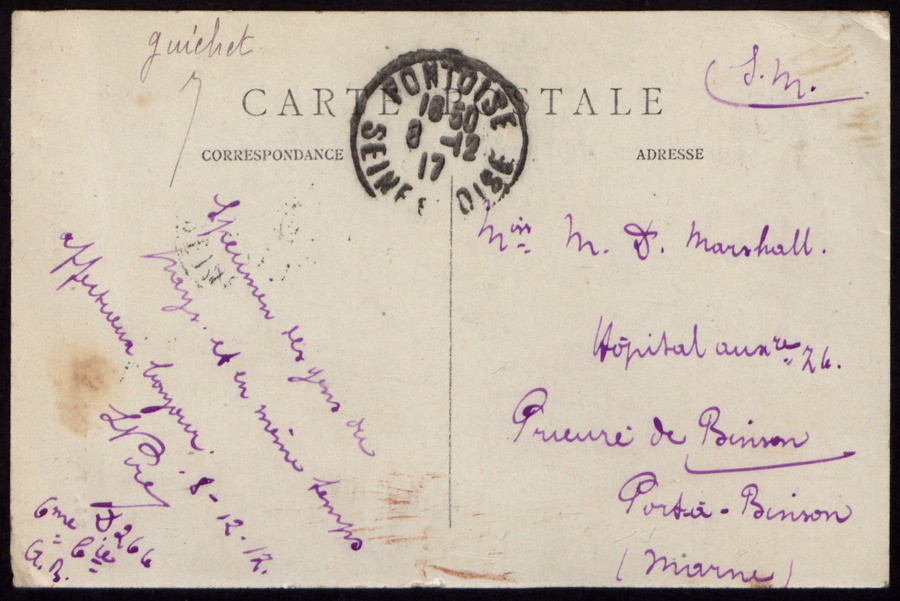 guichet
S. M.
CARTE POSTALE
PONTOISE
18 30
8 -12
17
SEINE OISE
CORRESPONDANCE
ADRESSE
Specimen des gens du
pays. et en même temps
affectueux bonjour.
8-12-17.
D 266
6me Cie
A. B.
Miss M. D. Marshall.
Hôpital auxre 26.
Prieuré de Binson
Port-à-Binson
(Marne)